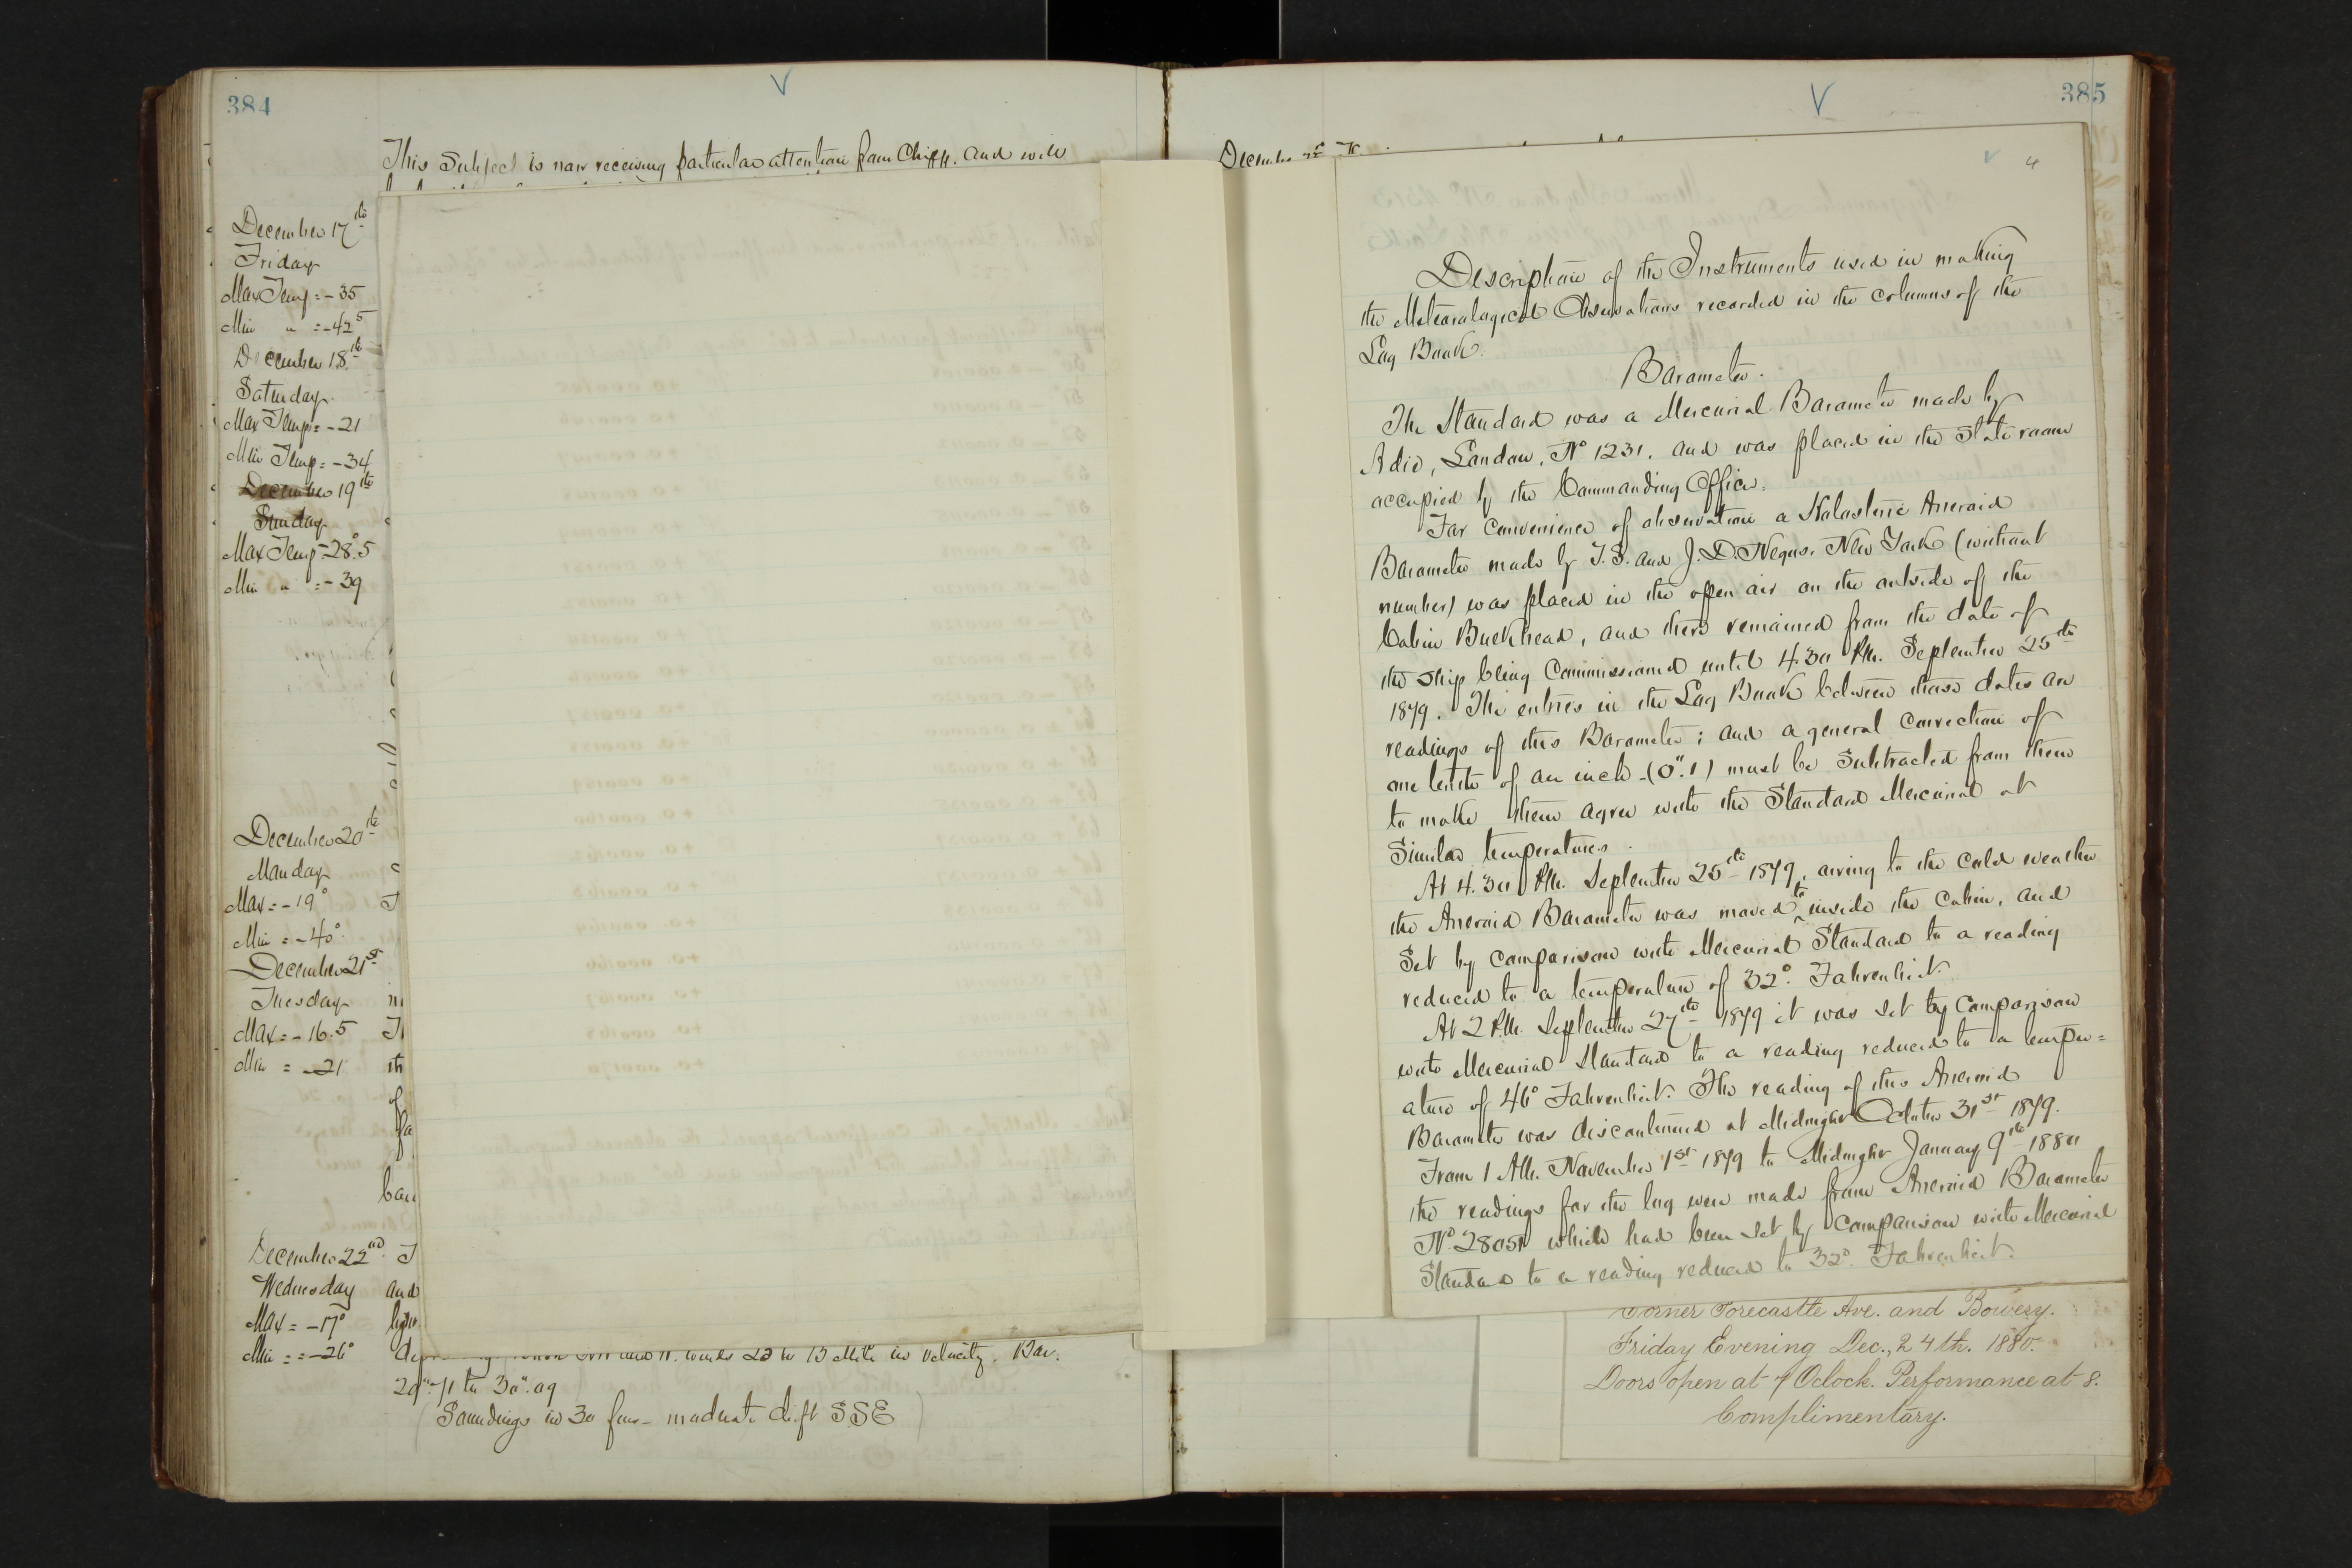 384
V
This Subject is now receiving particular attention from Chipp. and will
December 17th
Friday
Max Temp = -35
Min " = -42.5
December 18th
Saturday.
Max Temp = -21
Min Temp = -34
December 19th
Sunday
Max Temp -28°.5
Min " = -39
December 20th
Monday
Max = -19°
Min = -40°
December 21st
Tuesday
Max = -16.5
Min = -21
December 22nd
Wednesday
Max = -17°
Min = -26°
and N. winds 20 to 13 Mile in velocity. Bar.
29".71 to 30".09
(Soundings in 30 fms - moderate drift SSE)
385
V
4
Description of the Instruments used in making
the Meteorological Observations recorded in the columns of the
Log Book.
Barometer.
The Standard was a Mercurial Barometer made by
Adie, London, No 1231. and was placed in the State room
occupied by the Commanding Officer.
For convenience of observation a Holosteric Aneroid
Barometer made by T.S. and J.D. Negus. New York (without
number) was placed in the open air on the outside of the
Cabin Bulkhead, and there remained from the date of
the ship being Commissioned until 4.30 P.M. September 25th
1879. The entries in the Log Book between these dates are
readings of this Barometer; and a general correction of
one tenth of an inch -(0".1) must be Subtracted from them
to make them agree with the Standard Mercurial at
Similar temperatures.
At 4.30 P.M. September 25th 1879, owing to the cold weather
the Aneroid Barometer was moved to inside the Cabin, and
Set by comparison with Mercurial Standard to a reading
reduced to a temperature of 32° Fahrenheit.
At 2 P.M. September 27th 1879 it was set by Comparison
with Mercurial Standard to a reading reduced to a temper=
ature of 46° Fahrenheit. The reading of this Aneroid
Barometer was discontinued at Midnight October 31st 1879.
From 1 A.M. November 1st 1879 to Midnight January 9th 1880
the readings for the log were made from Aneroid Barometer
No. which had been set by Comparison with Mercurial
Standard to a reading reduced to 32° Fahrenheit.
Corner Forecastle Ave. and Bowery.
Friday Evening Dec., 24th. 1880.
Doors open at 7 Oclock. Performance at 8.
Complimentary.